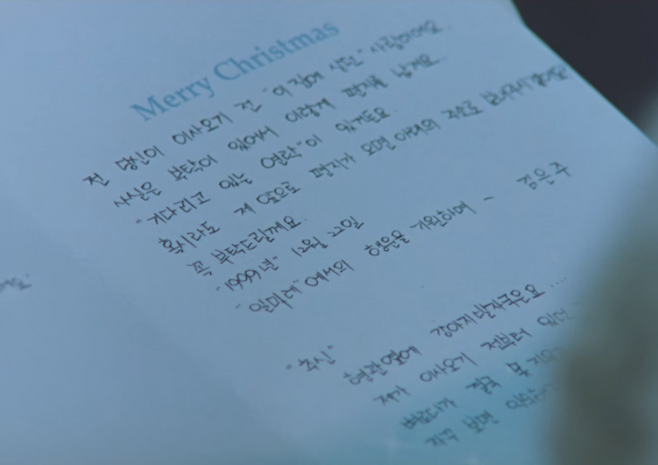 Merry Christmas
전 당신이 이사오기 전 "이 집에 살던" 사람이에요.
사실은 부탁이 있어서 이렇게 편지를 남겨요.
"기다리고 있는 연락"이 있거든요.
혹시라도 제 앞으로 편지가 오면 아래의 주소로 보내주시겠어요?
꼭 부탁드릴게요.
"1999년" 12월 22일
"일마레"에서의 행운을 기원하며 - 김은주
"추신"
현관옆에 강아지발자국은요 ....
제가 이사오기 전부터 있던
결국 못 지우
자꾸 보면